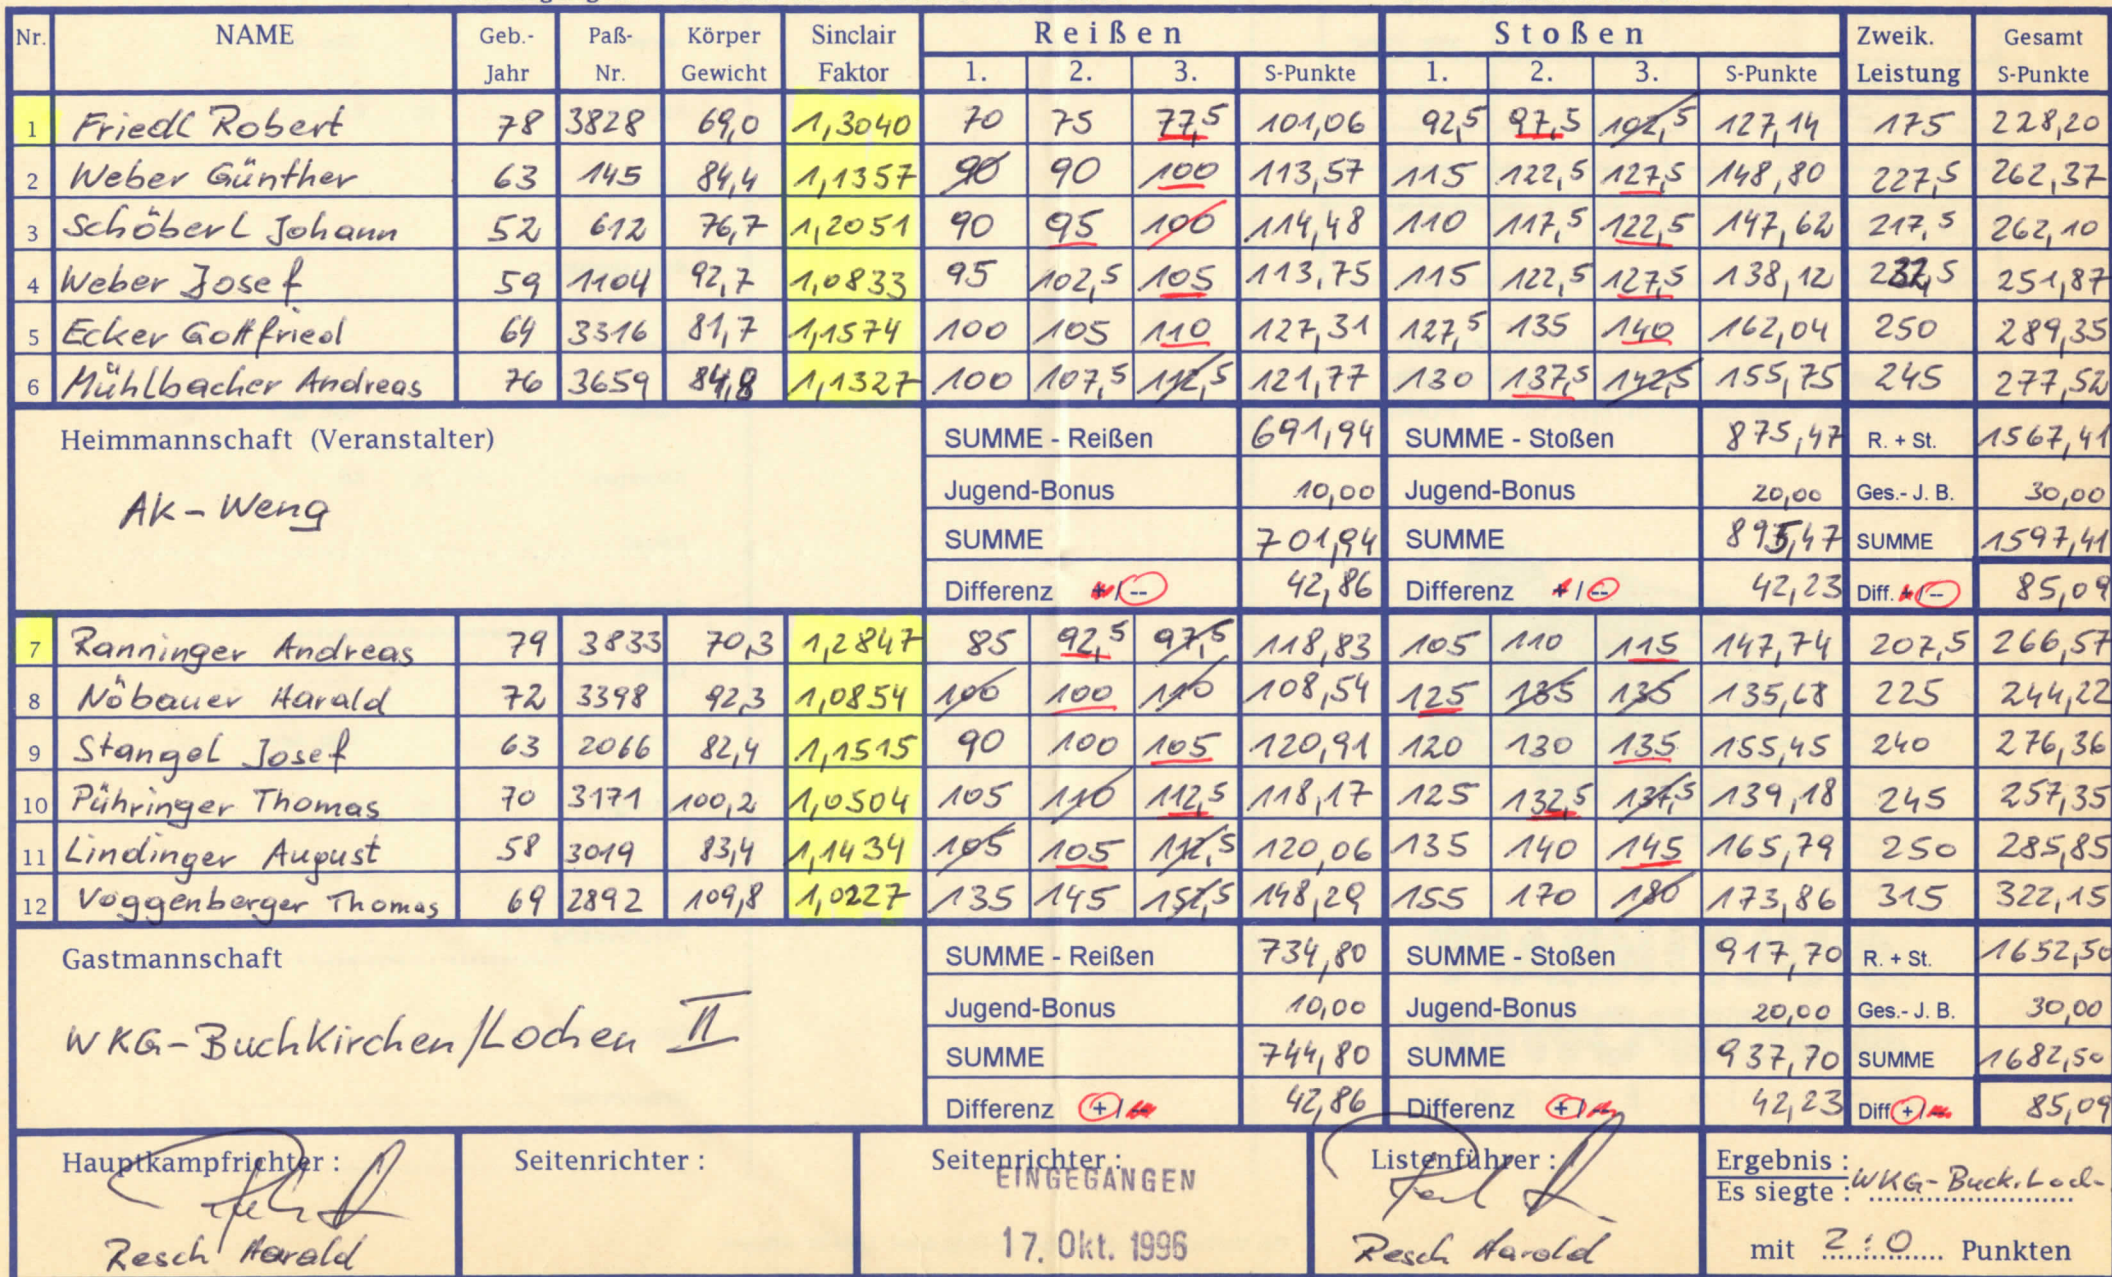 Nr. NAME Geb.- Paß- Körper Sinclair Reißen Stoßen Zweik. Gesamt
Jahr Nr. Gewicht Faktor 1. 2. 3. S-Punkte 1. 2. 3. S-Punkte Leistung S-Punkte
1 Friedl Robert 78 3828 69,0 1,3040 70 75 77,5 101,06 92,5 97,5 102,5 127,14 175 228,20
2 Weber Günther 63 145 84,4 1,1357 90 90 100 113,57 115 122,5 127,5 148,80 227,5 262,37
3 Schöberl Johann 52 612 76,7 1,2051 90 95 100 114,48 110 117,5 122,5 147,62 217,5 262,10
4 Weber Josef 59 1104 92,7 1,0833 95 102,5 105 113,75 115 122,5 127,5 138,12 232,5 251,87
5 Ecker Gottfried 64 3316 81,7 1,1574 100 105 110 127,31 127,5 135 140 162,04 250 289,35
6 Mühlbacher Andreas 76 3659 84,8 1,1327 100 107,5 112,5 121,77 130 137,5 142,5 155,75 245 277,52
Heimmannschaft (Veranstalter) SUMME - Reißen 691,94 SUMME - Stoßen 875,47 R. + St. 1567,41
AK-Weng Jugend-Bonus 10,00 Jugend-Bonus 20,00 Ges.- J. B. 30,00
SUMME 701,94 SUMME 895,47 SUMME 1597,41
Differenz +/-- 42,86 Differenz +/-- 42,23 Diff. +/-- 85,09
7 Ranninger Andreas 79 3833 70,3 1,2847 85 92,5 97,5 118,83 105 110 115 147,74 207,5 266,57
8 Nöbauer Harald 72 3398 92,3 1,0854 100 100 110 108,54 125 135 135 135,68 225 244,22
9 Stangel Josef 63 2066 82,4 1,1515 90 100 105 120,91 120 130 135 155,45 240 276,36
10 Pühringer Thomas 70 3171 100,2 1,0504 105 110 112,5 118,17 125 132,5 137,5 139,18 245 257,35
11 Lindinger August 58 3019 83,4 1,1434 105 105 112,5 120,06 135 140 145 165,79 250 285,85
12 Voggenberger Thomas 69 2892 109,8 1,0227 135 145 152,5 148,29 155 170 180 173,86 315 322,15
Gastmannschaft SUMME - Reißen 734,80 SUMME - Stoßen 917,70 R. + St. 1652,50
WKG-Buchkirchen/Lochen II Jugend-Bonus 10,00 Jugend-Bonus 20,00 Ges.- J. B. 30,00
SUMME 744,80 SUMME 937,70 SUMME 1682,50
Differenz +/-- 42,86 Differenz +/-- 42,23 Diff +/-- 85,09
Hauptkampfrichter : Seitenrichter : Seitenrichter : Listenführer : Ergebnis :
EINGEGANGEN Es siegte : WKG-Buck.Loch-
17. Okt. 1996
Resch Harold Resch Harold mit 2:0 Punkten